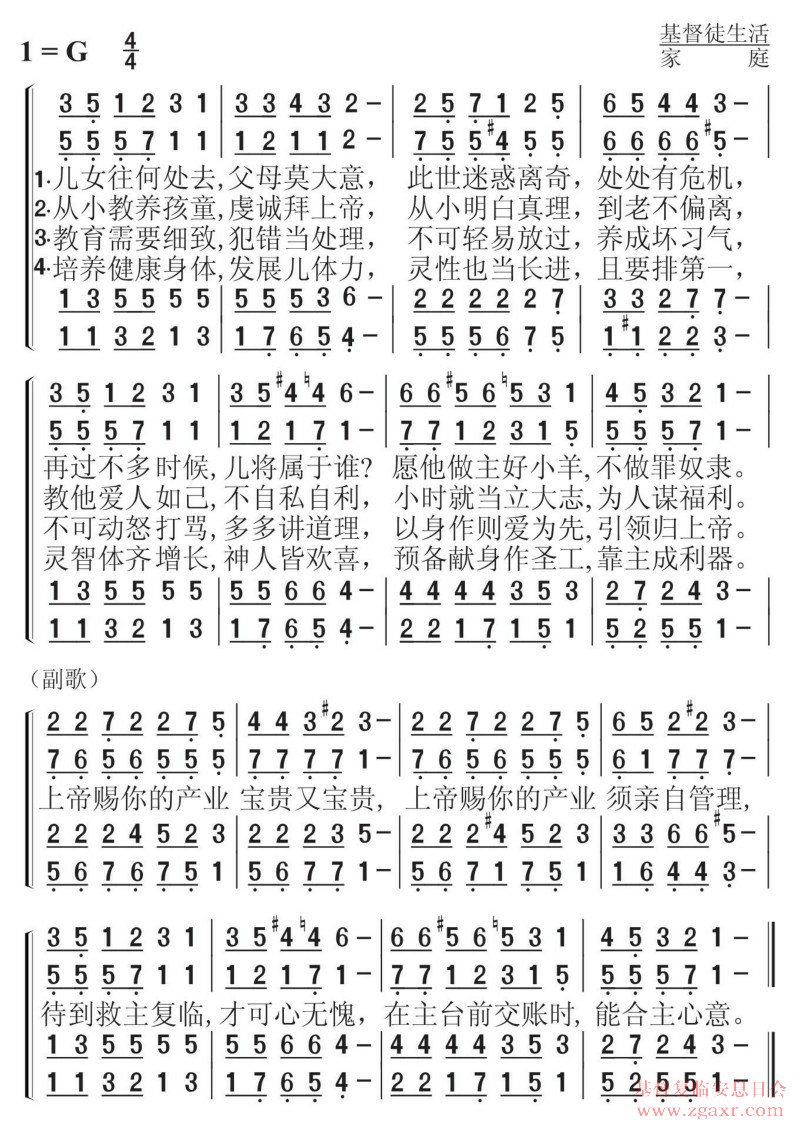 1=G 4/4
基督徒生活
家 庭
3 5 1 2 3 1 | 3 3 4 3 2 – | 2 5 7 1 2 5 | 6 5 4 4 3 –
5 5 5 7 1 1 | 1 2 1 1 2 – | 7 5 5 #4 5 5 | 6 6 6 6 #5 –
1·儿女往何处去,父母莫大意, 此世迷惑离奇,处处有危机,
2·从小教养孩童,虔诚拜上帝, 从小明白真理,到老不偏离,
3·教育需要细致,犯错当处理, 不可轻易放过,养成坏习气,
4·培养健康身体,发展儿体力, 灵性也当长进,且要排第一,
1 3 5 5 5 5 | 5 5 5 3 6 – | 2 2 2 2 2 7 | 3 3 2 7 7 –
1 1 3 2 1 3 | 1 7 6 5 4 – | 5 5 5 6 7 5 | 1 #1 2 2 3 –
3 5 1 2 3 1 | 3 5 #4 ♮4 6 – | 6 6 #5 6 ♮5 3 1 | 4 5 3 2 1 –
5 5 5 7 1 1 | 1 2 1 7 1 – | 7 7 1 2 3 1 5 | 5 5 5 7 1 –
再过不多时候,儿将属于谁? 愿他做主好小羊,不做罪奴隶。
教他爱人如己,不自私自利, 小时就当立大志,为人谋福利。
不可动怒打骂,多多讲道理, 以身作则爱为先,引领归上帝。
灵智体齐增长,神人皆欢喜, 预备献身作圣工,靠主成利器。
1 3 5 5 5 5 | 5 5 6 6 4 – | 4 4 4 4 3 5 3 | 2 7 2 4 3 –
1 1 3 2 1 3 | 1 7 6 5 4 – | 2 2 1 7 1 5 1 | 5 2 5 5 1 –
(副歌)
2 2 7 2 2 7 5 | 4 4 3 #2 3 – | 2 2 7 2 2 7 5 | 6 5 2 #2 3 –
7 6 5 6 5 5 5 | 7 7 7 7 1 – | 7 6 5 6 5 5 5 | 6 1 7 7 7 –
上帝赐你的产业 宝贵又宝贵, 上帝赐你的产业 须亲自管理,
2 2 2 4 5 2 3 | 2 2 2 3 5 – | 2 2 2 #4 5 2 3 | 3 3 6 6 #5 –
5 6 7 6 7 5 1 | 5 6 7 7 1 – | 5 6 7 1 7 5 1 | 1 6 4 4 3 –
3 5 1 2 3 1 | 3 5 #4 ♮4 6 – | 6 6 #5 6 ♮5 3 1 | 4 5 3 2 1 –
5 5 5 7 1 1 | 1 2 1 7 1 – | 7 7 1 2 3 1 5 | 5 5 5 7 1 –
待到救主复临,才可心无愧, 在主台前交账时,能合主心意。
1 3 5 5 5 5 | 5 5 6 6 4 – | 4 4 4 4 3 5 3 | 2 7 2 4 3 –
1 1 3 2 1 3 | 1 7 6 5 4 – | 2 2 1 7 1 5 1 | 5 2 5 5 1 –
基督复临安息日会
www.zgaxr.com